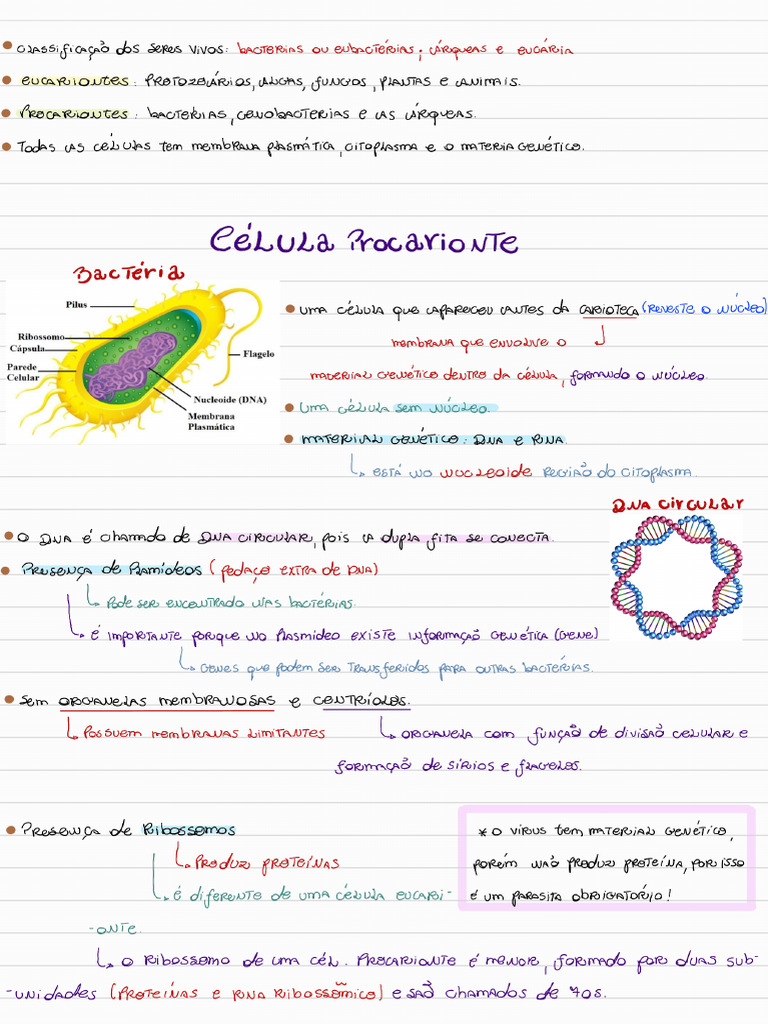 Classificação dos seres vivos: bactérias ou eubactérias; árqueas e eucária
Eucariontes: protozoários, algas, fungos, plantas e animais.
Procariontes: bactérias, cenobactérias e as árqueas.
Todas as células tem membrana plasmática, citoplasma e o materia genético.
Célula Procarionte
Bactéria
Pilus
Ribossomo
Cápsula
Parede Celular
Flagelo
Nucleoide (DNA)
Membrana Plasmática
Uma célula que apareceu antes da carioteca (reveste o núcleo)
membrana que envolve o
material genético dentro da célula, formando o núcleo.
Uma célula sem núcleo.
Material genético: DNA e RNA.
está no nucleoide região do citoplasma.
DNA circular
O DNA é chamado de DNA circular, pois a dupla fita se conecta.
Presença de Plamídeos (pedaço extra de DNA)
Pode ser encontrado nas bactérias.
é importante porque no plasmídeo existe informação genética (gene)
Genes que podem ser transferidos para outras bactérias.
Sem organelas membranosas e centríolos.
Possuem membranas limitantes
organela com função de divisão celular e
formação de sírios e flagelos.
Presença de Ribossomos
Produz proteínas
é diferente de uma célula eucari-
-onte.
O ribossomo de uma cél. procarionte é menor, formado por duas sub-
-unidades (proteínas e RNA ribossômico) e são chamados de 70s.
* O vírus tem material genético,
porém não produz proteína, por isso
é um parasita obrigatório!